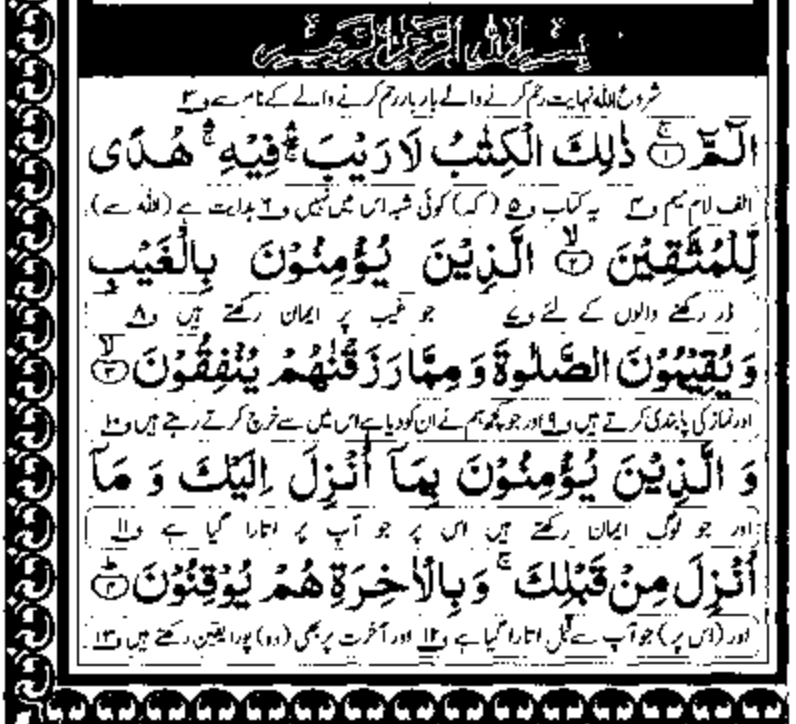 بِسْمِ اللهِ الرَّحْمٰنِ الرَّحِيْمِ
شروع اللہ نہایت رحم کرنے والے بار بار رحم کرنے والے کے نام سے و۳
الٓمّٓ ۚ﴿۱﴾ ذٰلِكَ الْكِتٰبُ لَا رَيْبَ ۛۚ فِيْهِ ۛۚ هُدًى
الف لام میم و۴ یہ کتاب و۵ (کہ) کوئی شبہ اس میں نہیں و۶ ہدایت ہے (اللہ سے)
لِّلْمُتَّقِيْنَ ۙ﴿۲﴾ الَّذِيْنَ يُؤْمِنُوْنَ بِالْغَيْبِ
ڈر رکھنے والوں کے لئے و۷ جو غیب پر ایمان رکھتے ہیں و۸
وَيُقِيْمُوْنَ الصَّلٰوةَ وَمِمَّا رَزَقْنٰهُمْ يُنْفِقُوْنَ ۙ﴿۳﴾
اور نماز کی پابندی کرتے ہیں و۹ اور جو کچھ ہم نے ان کو دیا ہے اس میں سے خرچ کرتے رہتے ہیں و۱۰
وَ الَّذِيْنَ يُؤْمِنُوْنَ بِمَآ اُنْزِلَ اِلَيْكَ وَ مَآ
اور جو لوگ ایمان رکھتے ہیں اس پر جو آپ پر اتارا گیا ہے و۱۱
اُنْزِلَ مِنْ قَبْلِكَ ۚ وَبِالْاٰخِرَةِ هُمْ يُوْقِنُوْنَ ؕ﴿۴﴾
اور (اس پر) جو آپ سے قبل اتارا گیا ہے و۱۲ اور آخرت پر بھی (وہ) پورا یقین رکھتے ہیں و۱۳